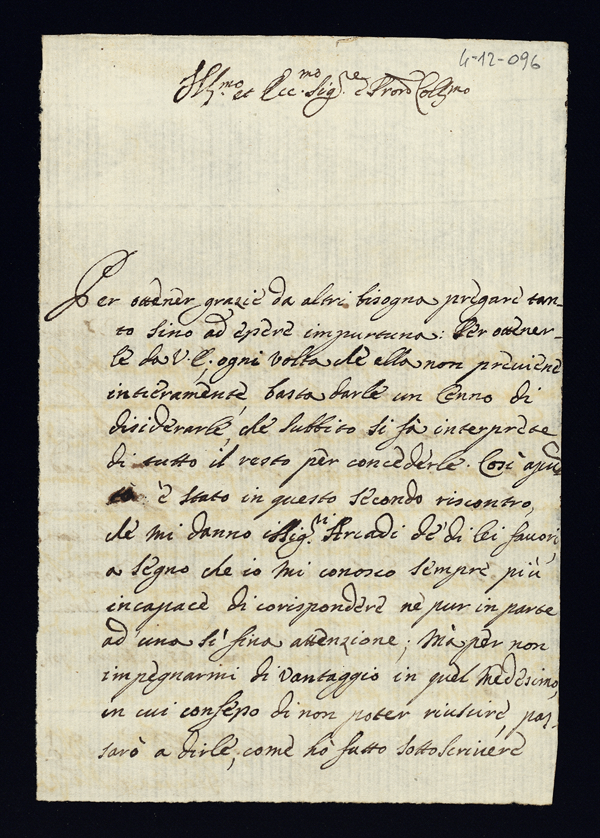 4-12-096
Ill.mo et Ecc.mo Sig.re e Pron Coll.mo
Per ottener grazie da altri bisogna pregare tan-
to sino ad essere impurtuna: Per ottener-
le da V.E., ogni volta che ella non previene
intieramente, basta darle un Cenno di
disiderarle, che subbito si fà interprete
di tutto il resto per concederle. Così apun
to è stato in questo secondo riscontro,
che mi danno i Sig.ri Arcadi de' di lei favori,
a segno che io mi conosco sempre più
incapace di corispondere ne pur in parte
ad una sì fina attenzione; Mà per non
impegnarmi di vantaggio in quel medesimo,
in cui confesso di non poter riuscire, pas-
sarò a dirle, come hò fatto sottoscrivere